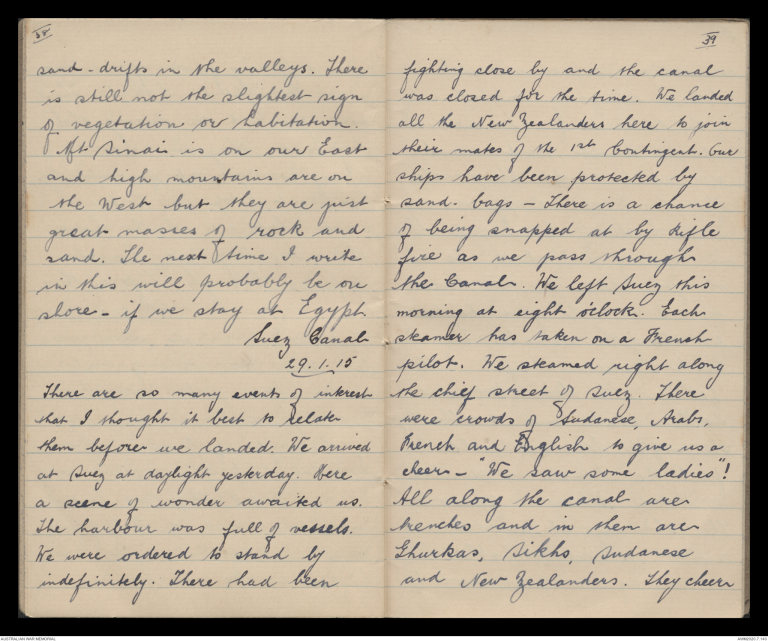 38
sand-drifts in the valleys. There
is still not the slightest sign
of vegetation or habitation.
Mt Sinai is on our East
and high mountains are on
the West but they are just
great masses of rock and
sand. The next time I write
in this will probably be on
shore - if we stay at Egypt
Suez Canal
29.1.15
There are so many events of interest
that I thought it best to relate
them before we landed. We arrived
at Suez at daylight yesterday. Here
a scene of wonder awaited us.
The harbour was full of vessels.
We were ordered to stand by
indefinitely. There had been
39
fighting close by and the canal
was closed for the time. We landed
all the New Zealanders here to join
their mates of the 1st Contingent. Our
ships have been protected by
sand-bags - There is a chance
of being snapped at by Rifle
fire as we pass through
the Canal. We left Suez this
morning at eight o'clock. Each
steamer has taken on a French
pilot. We steamed right along
the chief street of Suez. There
were crowds of Sudanese, Arabs,
French and English to give us a
cheer - "We saw some ladies"!
All along the canal are
trenches and in them are
Ghurkas, Sikhs, Sudanese
and New Zealanders. They cheer
AUSTRALIAN WAR MEMORIAL